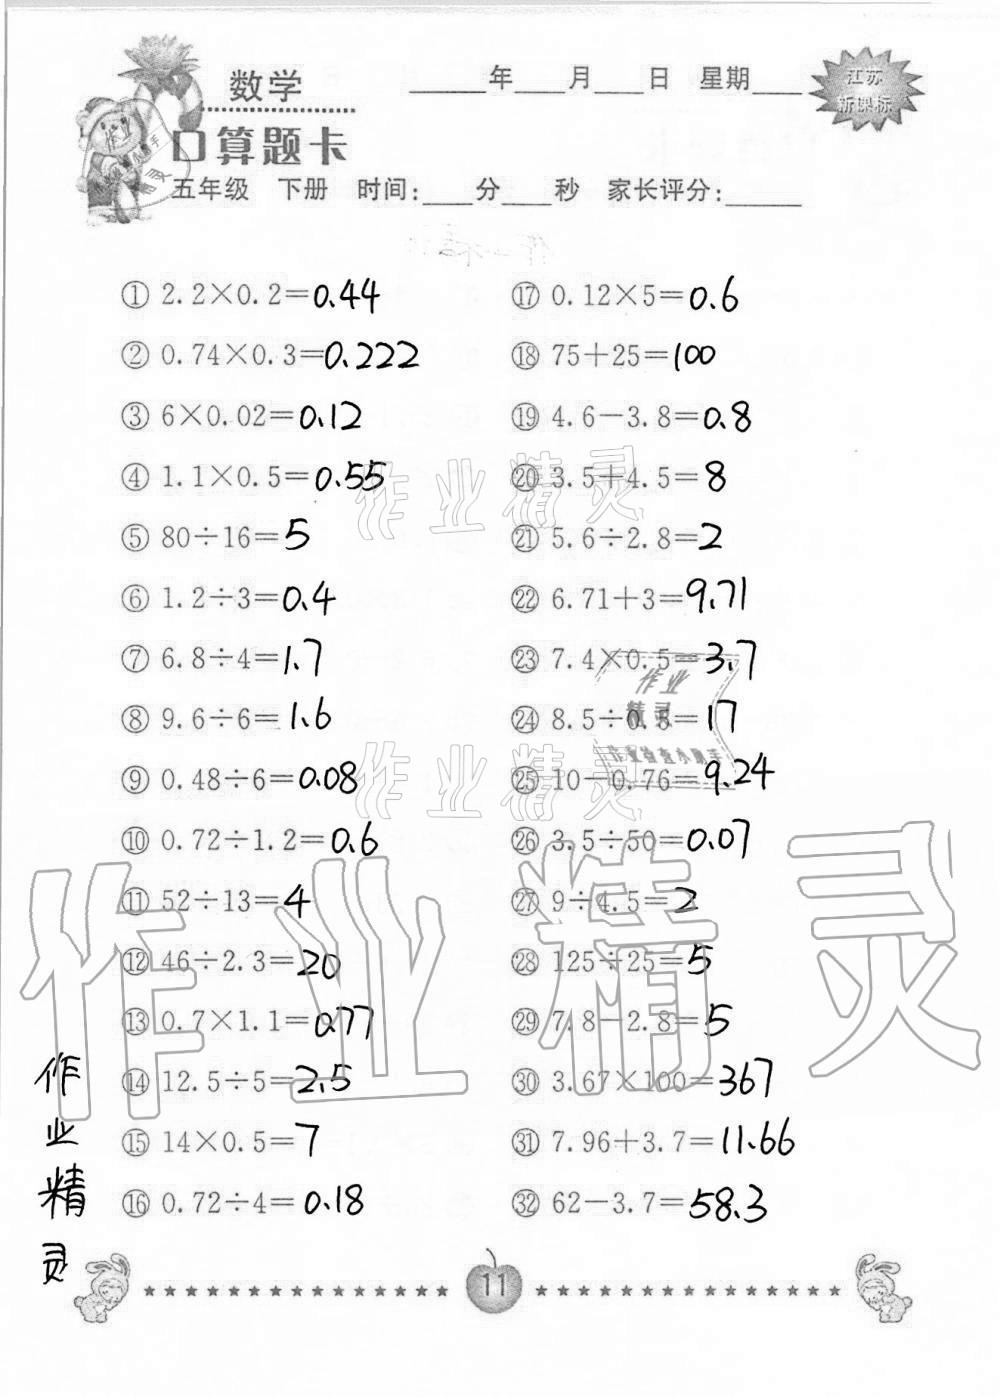 数学
口算题卡
____年____月____日 星期____
江苏
新课标
五年级 下册 时间:____分____秒 家长评分:____
① 2.2×0.2=0.44
② 0.74×0.3=0.222
③ 6×0.02=0.12
④ 1.1×0.5=0.55
⑤ 80÷16=5
⑥ 1.2÷3=0.4
⑦ 6.8÷4=1.7
⑧ 9.6÷6=1.6
⑨ 0.48÷6=0.08
⑩ 0.72÷1.2=0.6
⑪ 52÷13=4
⑫ 46÷2.3=20
⑬ 0.7×1.1=0.77
⑭ 12.5÷5=2.5
⑮ 14×0.5=7
⑯ 0.72÷4=0.18
⑰ 0.12×5=0.6
⑱ 75+25=100
⑲ 4.6-3.8=0.8
⑳ 3.5+4.5=8
㉑ 5.6÷2.8=2
㉒ 6.71+3=9.71
㉓ 7.4×0.5=3.7
㉔ 8.5÷0.5=17
㉕ 10-0.76=9.24
㉖ 3.5÷50=0.07
㉗ 9÷4.5=2
㉘ 125÷25=5
㉙ 7.8-2.8=5
㉚ 3.67×100=367
㉛ 7.96+3.7=11.66
㉜ 62-3.7=58.3
作业精灵
作业精灵
作业精灵
作业
精灵
作业检查小助手
作业精灵
11